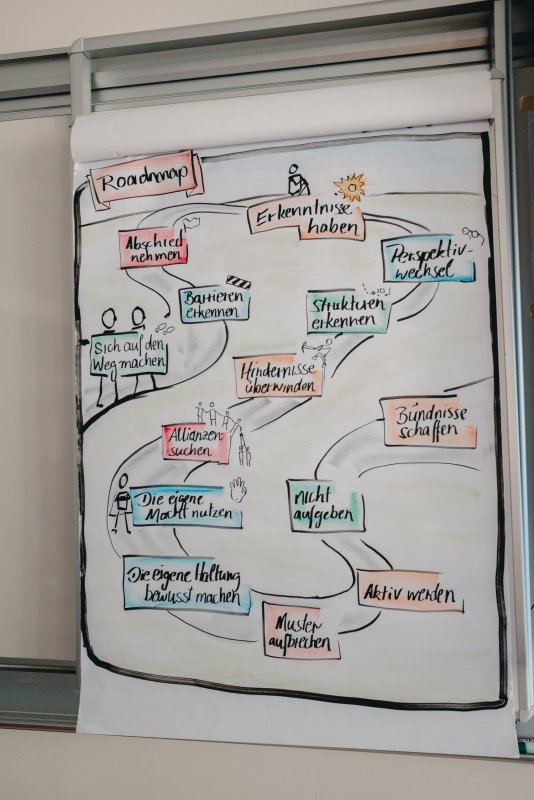 Roadmap
Erkenntnisse
haben
Abschied
nehmen
Perspektiv-
wechsel
Barrieren
erkennen
Strukturen
erkennen
Sich auf den
Weg machen
Hindernisse
überwinden
Bündnisse
schaffen
Allianzen
suchen
Die eigene
Macht nutzen
nicht
aufgeben
Die eigene Haltung
bewusst machen
Aktiv werden
Muster
aufbrechen